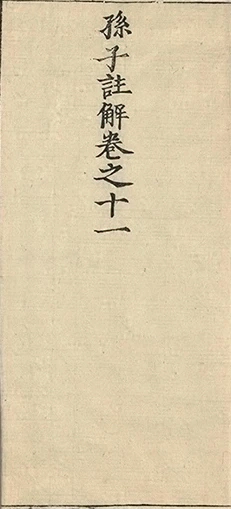 孫子註解卷之十一